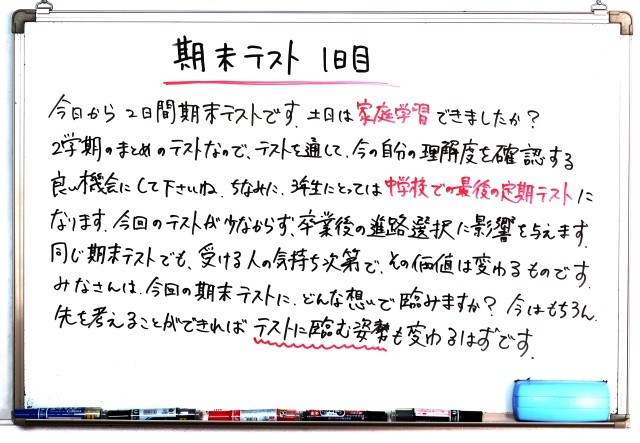 期末テスト 1日目
今日から2日間期末テストです。土日は家庭学習できましたか?
2学期のまとめのテストなので、テストを通して、今の自分の理解度を確認する
良い機会にして下さいね。ちなみに、3年生にとっては中学校での最後の定期テストに
なります。今回のテストが少なからず、卒業後の進路選択に影響を与えます。
同じ期末テストでも、受ける人の気持ち次第で、その価値は変わるものです。
みなさんは、今回の期末テストに、どんな想いで臨みますか? 今はもちろん、
先を考えることができればテストに臨む姿勢も変わるはずです。